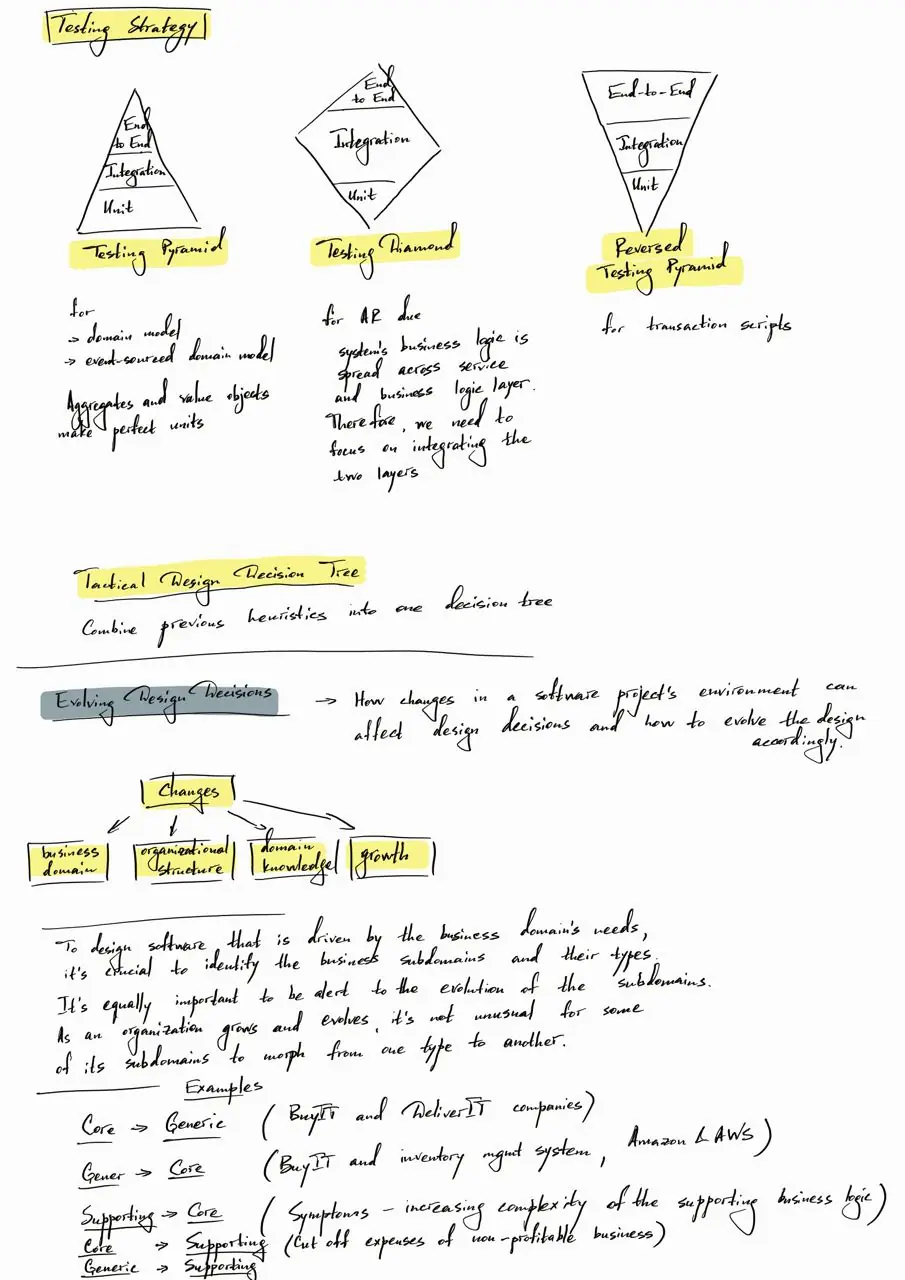 Testing Strategy
End
to End
Integration
Unit
Testing Pyramid
for
→ domain model
→ event-sourced domain model
Aggregates and value objects
make perfect units
End
to End
Integration
Unit
Testing Diamond
for AR due
system's business logic is
spread across service
and business logic layer.
Therefore, we need to
focus on integrating the
two layers
End-to-End
Integration
Unit
Reversed
Testing Pyramid
for transaction scripts
Tactical Design Decision Tree
Combine previous heuristics into one decision tree
Evolving Design Decisions
→ How changes in a software project's environment can
affect design decisions and how to evolve the design
accordingly.
Changes
business
domain
organizational
structure
domain
knowledge
growth
To design software that is driven by the business domain's needs,
it's crucial to identify the business subdomains and their types.
It's equally important to be alert to the evolution of the subdomains.
As an organization grows and evolves, it's not unusual for some
of its subdomains to morph from one type to another.
Examples
Core → Generic (BuyIT and DeliverIT companies)
Gener → Core (BuyIT and inventory mgmt system, Amazon & AWS)
Supporting → Core (Symptoms - increasing complexity of the supporting business logic)
Core → Supporting (Cut off expenses of non-profitable business)
Generic → Supporting